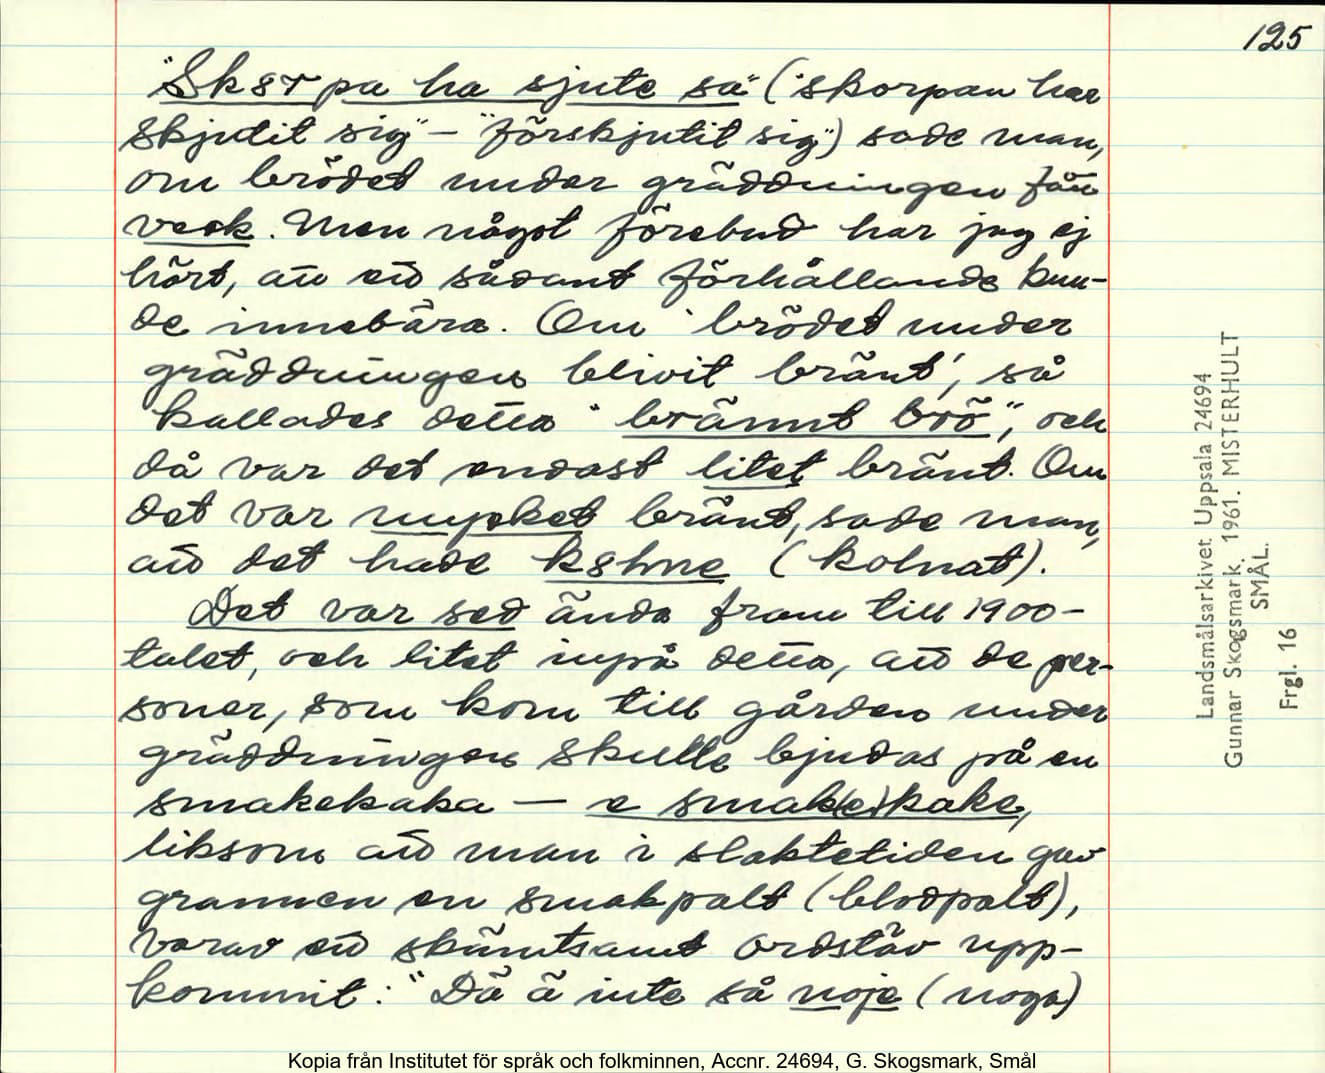 125
"Sk8rpa ha sjute sä" ("skorpan har
skjutit sig" - "förskjutit sig") sade man,
om brödet under gräddningen fått
veck. Men något förebud har jag ej
hört, att ett sådant förhållande kun-
de innebära. Om brödet under
gräddningen blivit bränt, så
kallades detta "brännt brö", och
då var det endast litet bränt. Om
det var mycket bränt, sade man,
att det hade k8lne (kolnat).
Det var sed ända fram till 1900-
talet, och litet inpå detta, att de per-
soner, som kom till gården under
gräddningen skulle bjudas på en
smakekaka — e smak(e)kake,
liksom att man i slaktetiden gav
grannen en smakpalt (blodpalt),
varav ett skämtsamt ordstäv upp-
kommit: "Dä ä inte så noje (noga)
Landsmålsarkivet Uppsala 24694
Gunnar Skogsmark. 1961. MISTERHULT
SMÅL.
Frgl. 16
Kopia från Institutet för språk och folkminnen, Accnr. 24694, G. Skogsmark, Smål